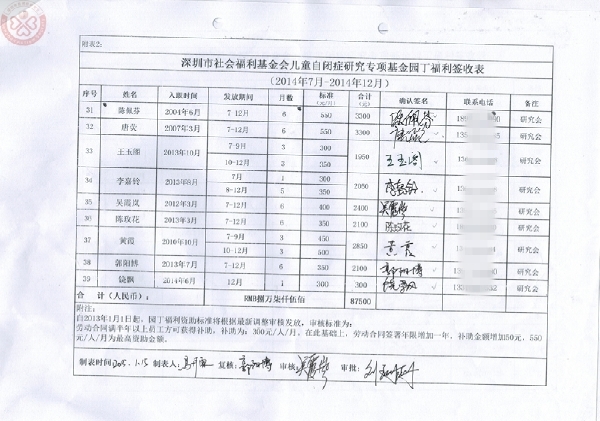 附表2:
深圳市社会福利基金会儿童自闭症研究专项基金园丁福利签收表
(2014年7月-2014年12月)
序号 姓名 入职时间 发放期间 月数 标准(元/月) 合计(元) 确认签名 联系电话 备注
31 陈佩芬 2004年6月 7-12月 6 550 3300 陈佩芬 研究会
32 唐荧 2007年3月 7-12月 6 550 3300 研究会
33 王玉 2013年10月 7-9月 3 300 1950 研究会
10-12月 3 350
34 李嘉铃 2013年8月 7月 1 300 2050 研究会
8-12月 5 350
35 吴霞岚 2012年3月 7-12月 6 400 2400 研究会
36 陈玫花 2013年3月 7-12月 6 350 2100 研究会
37 黄霞 2010年10月 7-9月 3 450 2850 黄霞 研究会
10-12月 3 500
38 郭阳博 2013年7月 7-12月 6 350 2100 郭阳博 研究会
39 饶飘 2014年6月 12月 1 300 300 饶飘 研究会
合 计(人民币): RMB捌万柒仟伍佰 87500
附注:
自2013年1月1日起,园丁福利资助标准将根据最新调整审核发放,审核标准为:
劳动合同满半年以上员工方可获得补助,补助为:300元/人/月,在此基础上,劳动合同签署年限增加一年,补助金额增加50元,550
元/人/月为最高资助金额。
制表时间: 2015.1.15 制表人: 复核: 郭阳博 审核: 审批: